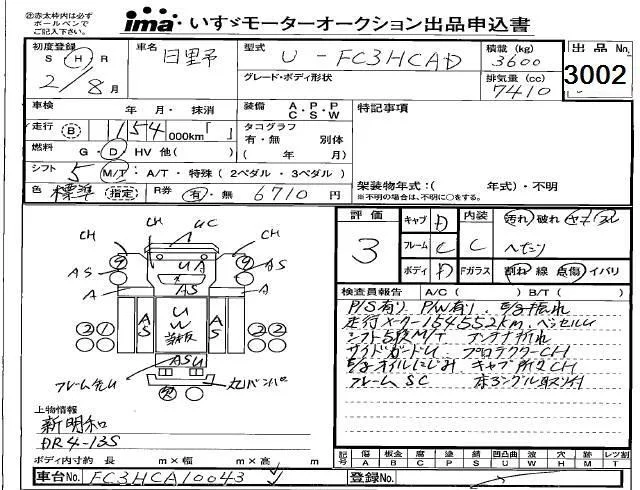 ㊟赤太枠内は必ず
ボールペンで
ご記入下さい。
ima いすゞモーターオークション出品申込書
初度登録 S H R 2/8月
車名 日野
型式 U-FC3HCAD
積載(kg) 3600
出品No. 3002
グレード・ボディ形状
排気量(cc) 7410
車検 年 月・ 抹消
装備 A・P・P C S W
特記事項
走行 B 154 000km「 」
タコグラフ 有・無 別体
( 年 月)
燃料 G・D HV 他( )
シフト 5 M/T・A/T・特殊(2ペダル・3ペダル)
架装物年式:( 年式)・不明
※不明の場合は、不明に○をする。
色 標準 (指定) R券 有・無 6710 円
評価 3
キャブ D
内装 C
汚れ 破れ キズ スレ
フレーム C
へたり
ボディ D
Fガラス
割れ 線 点傷 イバリ
CH CH UC CH
9 UA 9
AS AS AS
A A
2 2 AS UW 荷板 AS 2
ASU
検査員報告 A/C( ) B/T( )
P/S有り P/W有り
走行メーター154,552km
シフト5段M/T アンテナ折れ
サイドガードU プロテクターCH
E/gオイルにじみ キャブ所々CH
フレームSC
上物情報
新明和
DR4-13S
ボディ内寸約 長 m×幅 m×高 m
記号 傷 A 板金 B 腐 C 塗 P 錆 S 凹凸曲 U 波 W 穴 H 跡 M レツ割 T
車台No. FC3HCA10043
登録No.